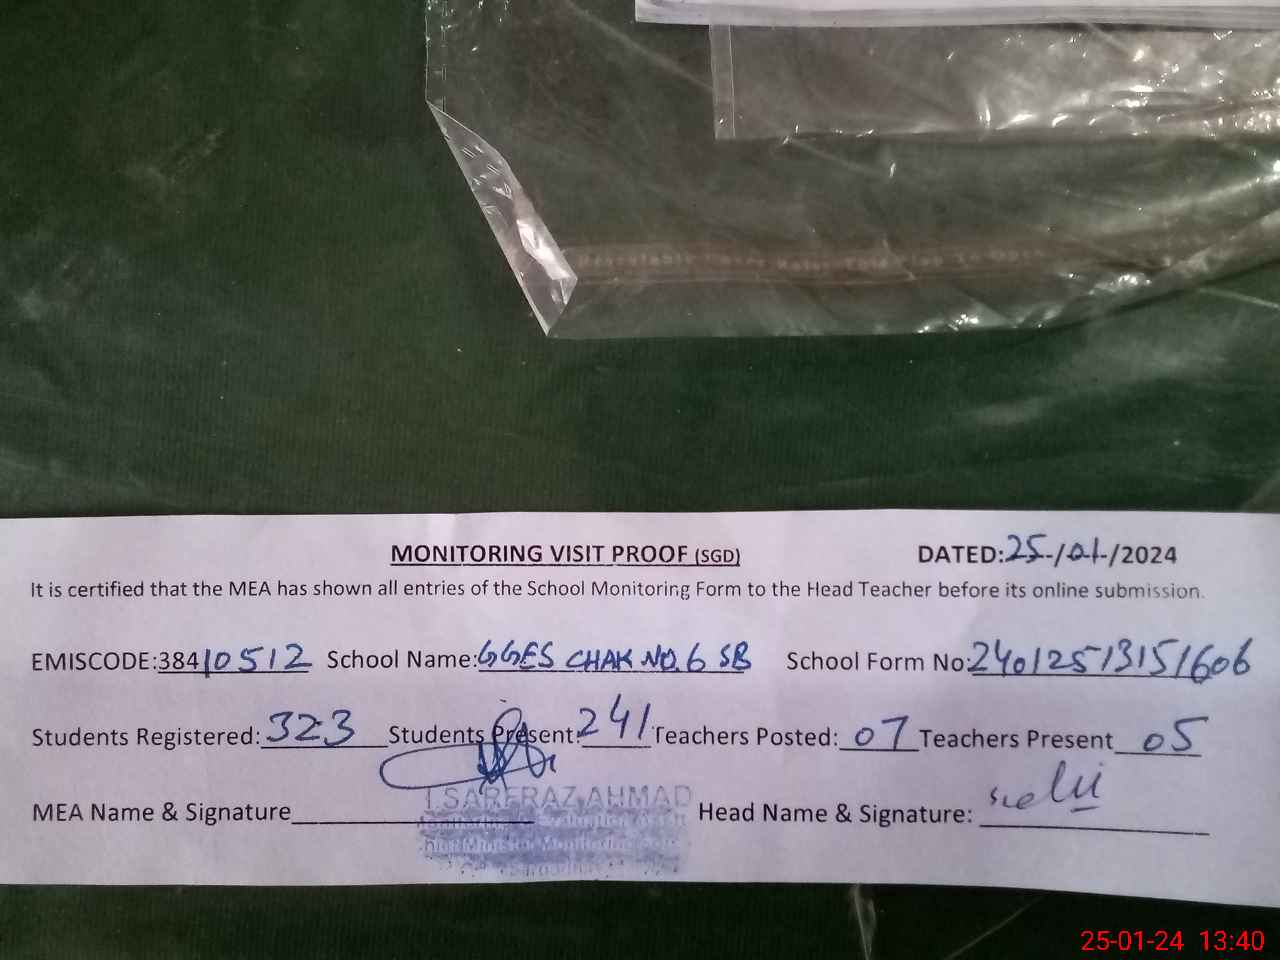 MONITORING VISIT PROOF (SGD) DATED:25-/01-/2024
It is certified that the MEA has shown all entries of the School Monitoring Form to the Head Teacher before its online submission.
EMISCODE:38410512 School Name:GGES CHAK NO.6 SB School Form No:24012513151606
Students Registered: 323 Students Present: 241 Teachers Posted: 07 Teachers Present 05
MEA Name & Signature Head Name & Signature:
SARFRAZ AHMAD
Monitoring
25-01-24 13:40